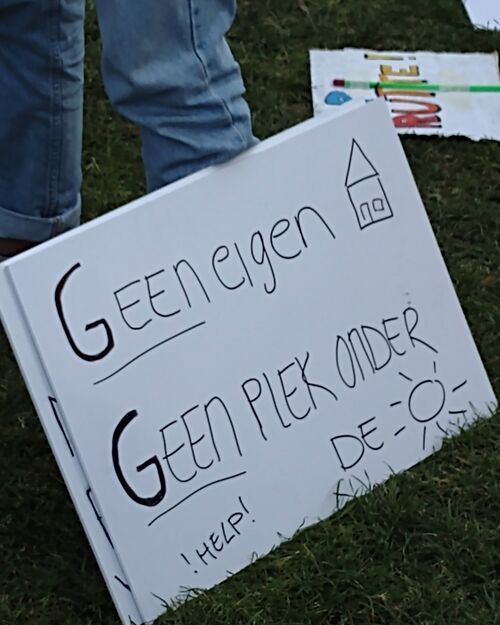 GEEN eigen
GEEN PLEK ONDER
DE
! HELP!